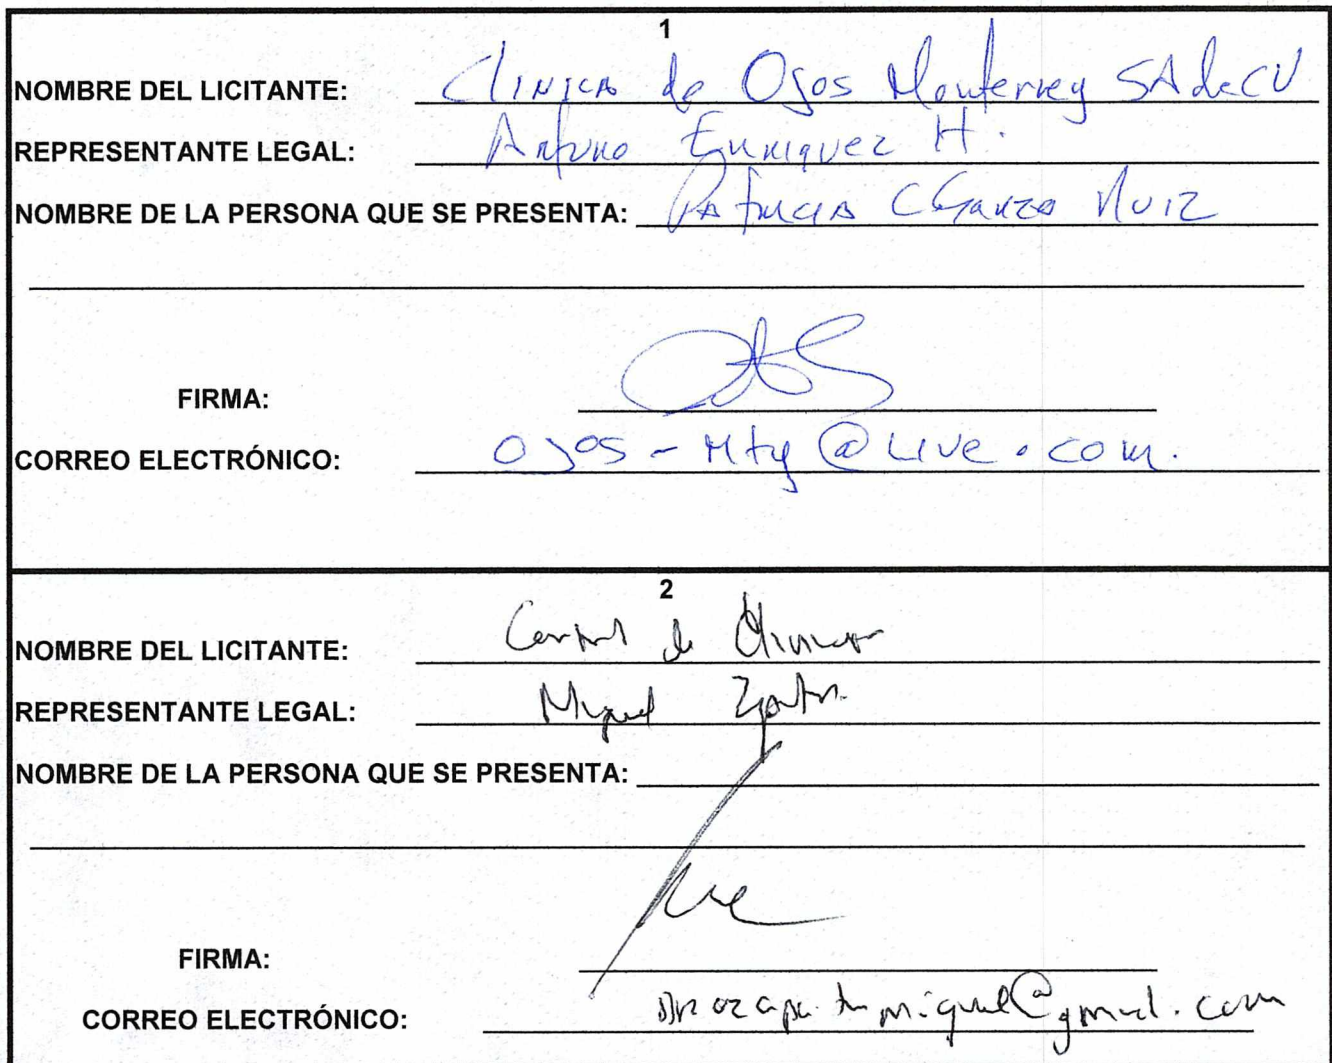 1
NOMBRE DEL LICITANTE: Clinica de Ojos Monterrey SA de CV
REPRESENTANTE LEGAL: Arturo Enriquez H.
NOMBRE DE LA PERSONA QUE SE PRESENTA: Patricia C Garza Ruiz
FIRMA:
CORREO ELECTRÓNICO: Ojos-Mty@Live.com.
2
NOMBRE DEL LICITANTE: de
REPRESENTANTE LEGAL: Miguel
NOMBRE DE LA PERSONA QUE SE PRESENTA:
FIRMA:
CORREO ELECTRÓNICO: